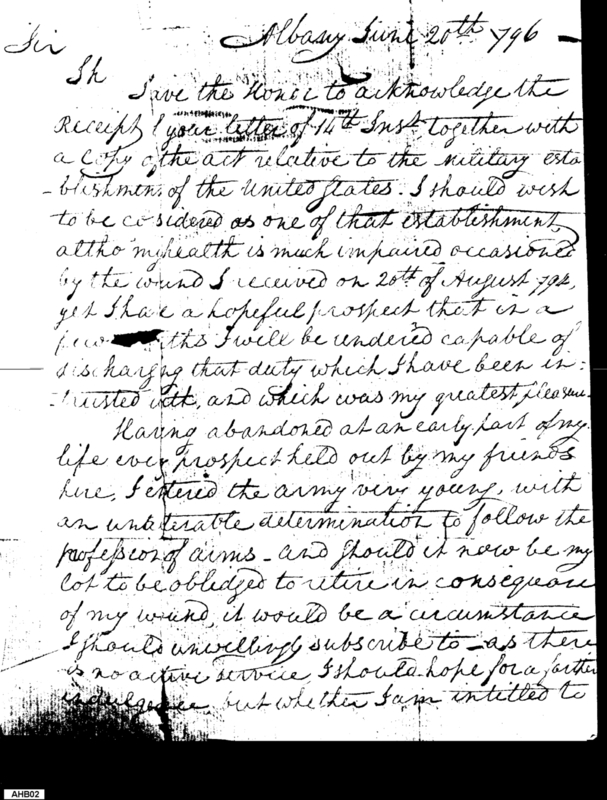 Albany June 20th 796
Sir
I have the Honor to acknowledge the
Receipt of your letter of 14th Inst. together with
a Copy of the act relative to the military esta
-blishment of the United States. I should wish
to be considered as one of that establishment,
altho' my health is much impaired occasioned
by the wound I received on 20th of August 794,
yet I have a hopeful prospect that in a
few I will be rendered capable of
discharging that duty which I have been in=
-trusted with, and which was my greatest pleasure.
Having abandoned at an early part of my
life every prospect held out by my friends
here, I entered the army very young, with
an unalterable determination to follow the
profession of arms - and should it now be my
lot to be obledged to retire in consequence
of my wound, it would be a circumstance
I should unwillingly subscribe to - as there
is no active service, I should hope for a farther
indulgence but whether I am intitled to
AHB02